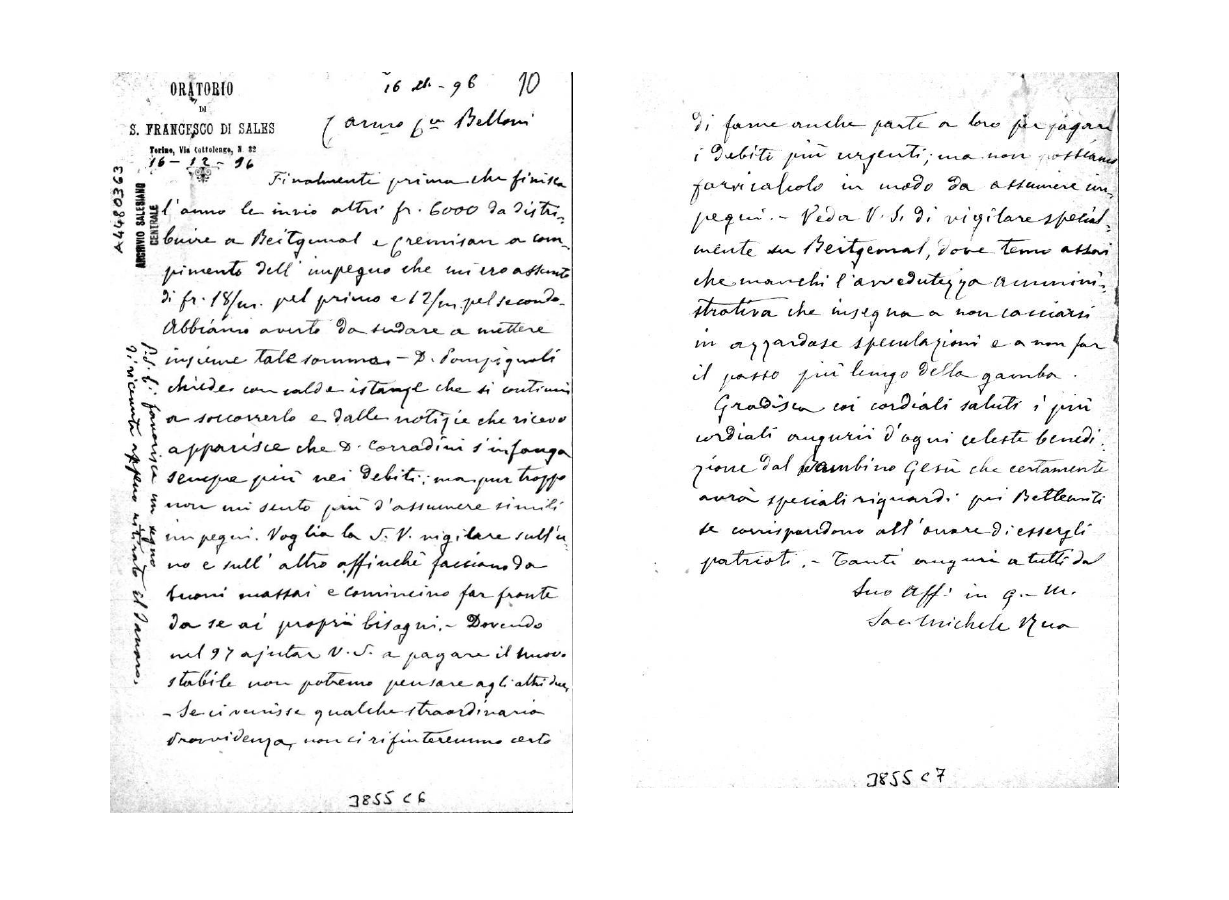 ORATORIO
DI
S. FRANCESCO DI SALES
Torino, Via Cottolengo, N. 32
16-12-96
16 - 96
10
Carmo Belloni
Finalmente prima che finisca
l'anno le invio altri fr. 6000 da distri-
buire a Beitgemal e Cremisan a com-
pimento dell'impegno che mi ero assunto
di fr. 18/m. pel primo e 12/m. pel secondo.
Abbiamo avuto da sudare a mettere
insieme tale somma - D. Pompignoli
chiede con calde istanze che si continui
a soccorrerlo e dalle notizie che ricevo
apparisce che D. Corradini s'infanga
sempre più nei debiti; ma pur troppo
non mi sento più d'assumere simili
impegni. Voglia la S. V. vigilare sull'u-
no e sull'altro affinchè facciano da
buoni massai e comincino far fronte
da se ai proprii bisogni. - Dovendo
nel 97 ajutar V. S. a pagare il nuovo
stabile non potremo pensare agli altri due,
- Se ci venisse qualche straordinaria
Provvidenza, non ci rifiuteremmo certo
P.S. Ci favorisca un segno
di ricevuta appena ritirato il danaro.
A4480363
ARCHIVIO SALESIANO
CENTRALE
3855 C 6
di farne anche parte a loro per pagare
i debiti più urgenti; ma non possiamo
farvi calcolo in modo da assumere im-
pegni. - Veda V. S. di vigilare special-
mente su Beitgemal, dove temo assai
che manchi l'avvedutezza ammini-
strativa che insegna a non cacciarsi
in azzardose speculazioni e a non far
il passo più lungo della gamba.
Gradisca coi cordiali saluti i più
cordiali augurii d'ogni celeste benedi-
zione dal Bambino Gesù che certamente
avrà speciali riguardi pei Betlemiti
se corrispondono all'onore di essergli
patrioti. - Tanti auguri a tutti dal
Suo Aff. in G. M.
Sac. Michele Rua
3855 C 7